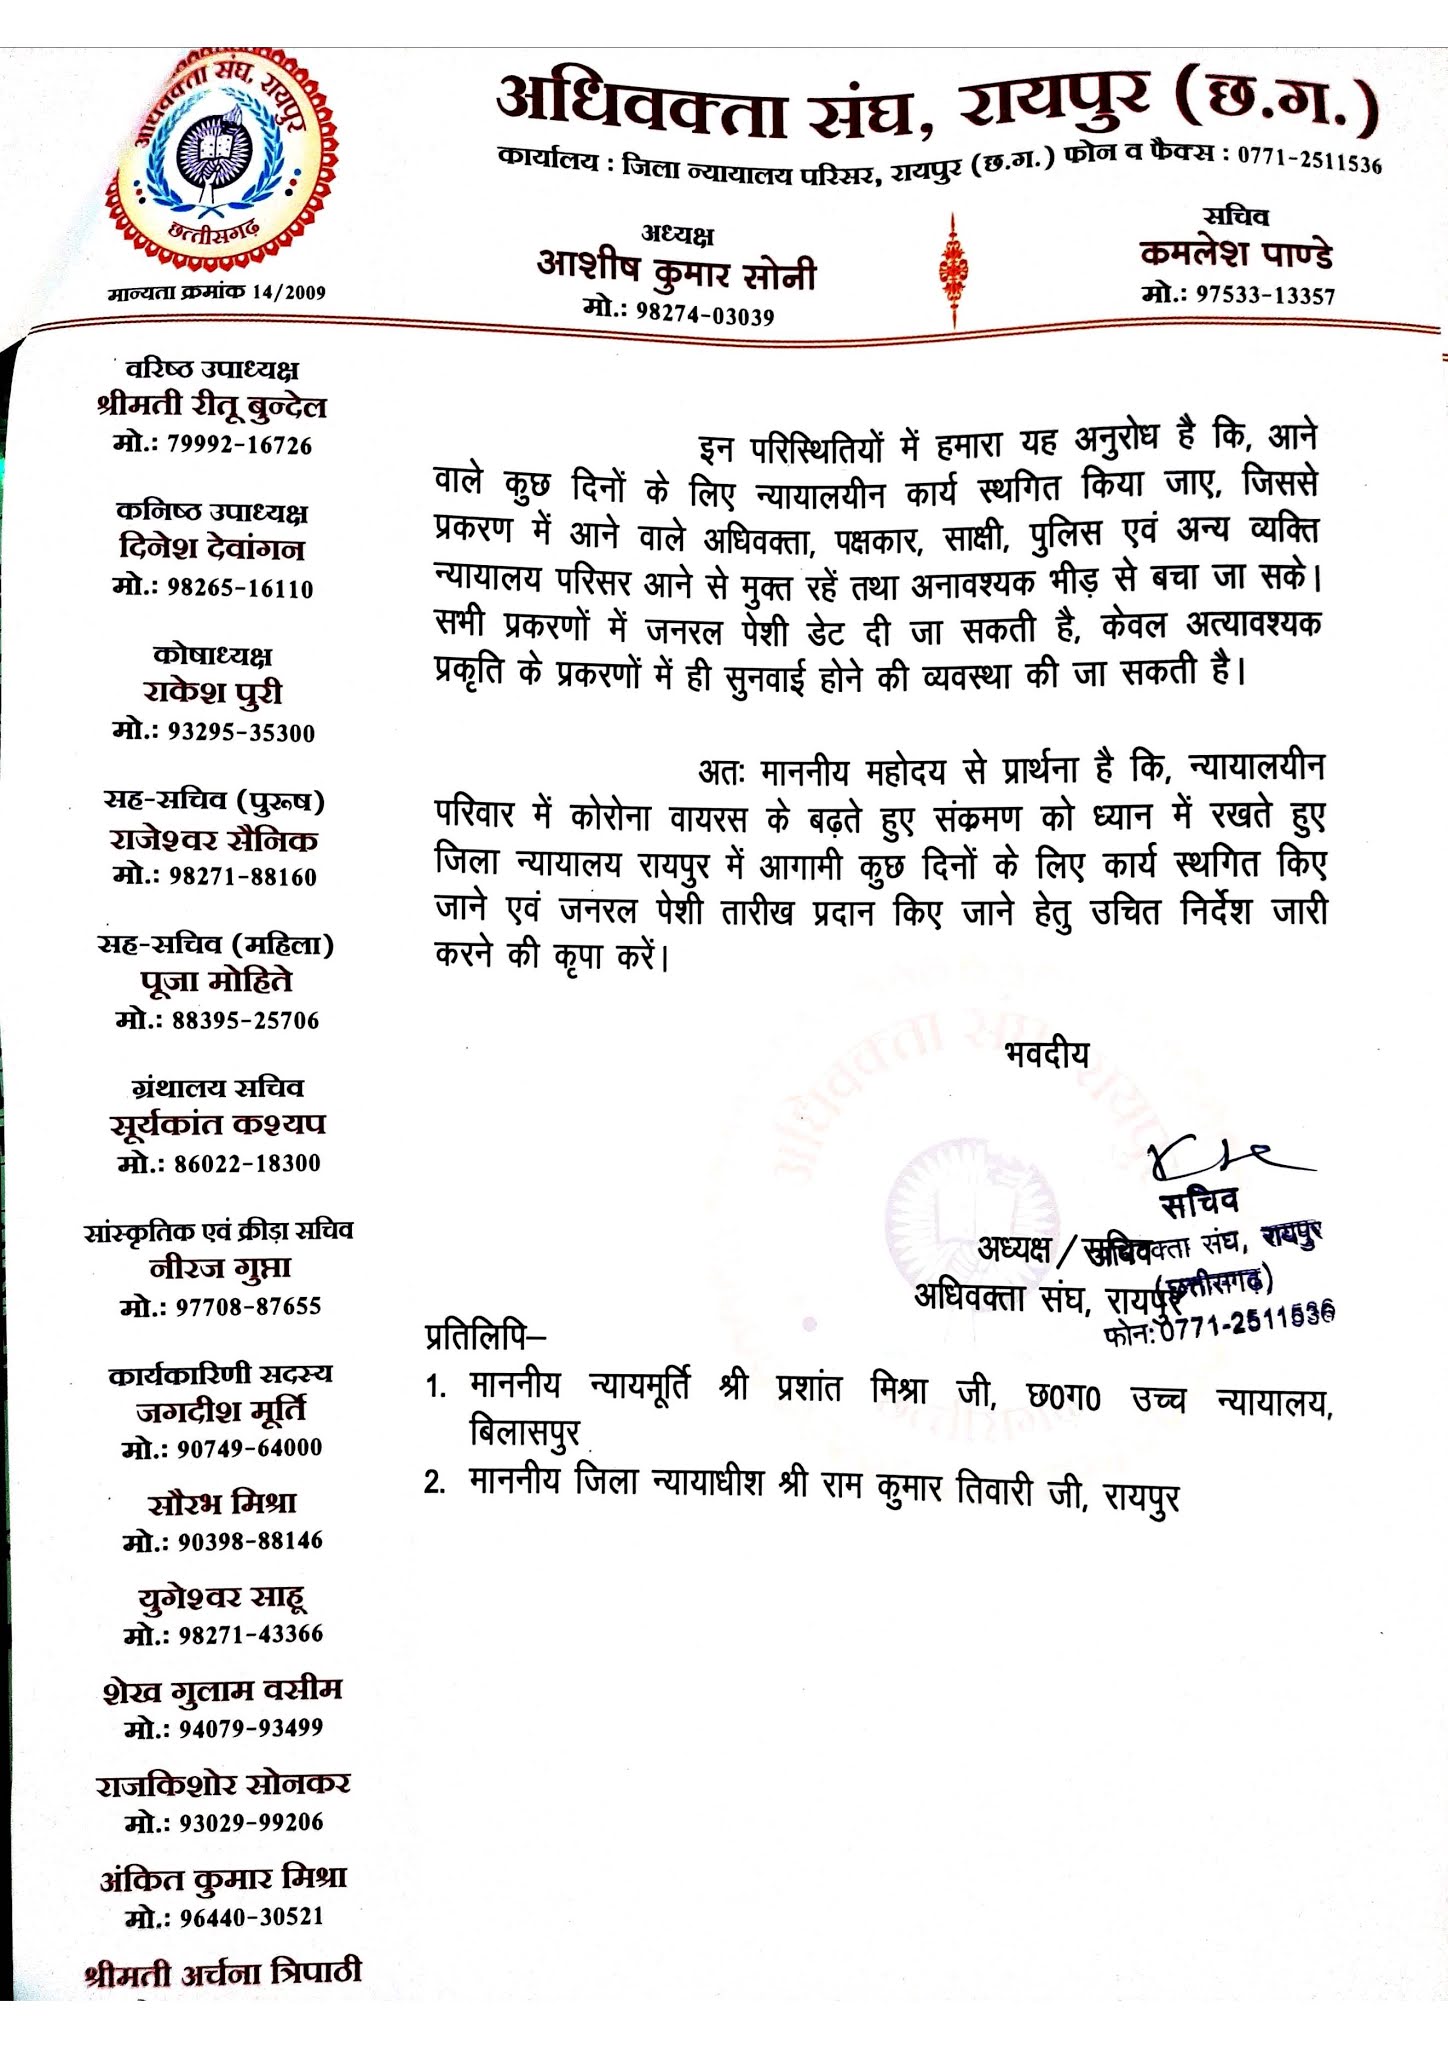 अधिवक्ता संघ, रायपुर
छत्तीसगढ़
मान्यता क्रमांक 14/2009
अधिवक्ता संघ, रायपुर (छ.ग.)
कार्यालय : जिला न्यायालय परिसर, रायपुर (छ.ग.) फोन व फैक्स : 0771-2511536
अध्यक्ष
आशीष कुमार सोनी
मो.: 98274-03039
सचिव
कमलेश पाण्डे
मो.: 97533-13357
वरिष्ठ उपाध्यक्ष
श्रीमती रीतू बुन्देल
मो.: 79992-16726
कनिष्ठ उपाध्यक्ष
दिनेश देवांगन
मो.: 98265-16110
कोषाध्यक्ष
राकेश पुरी
मो.: 93295-35300
सह-सचिव (पुरूष)
राजेश्वर सैनिक
मो.: 98271-88160
सह-सचिव (महिला)
पूजा मोहिते
मो.: 88395-25706
ग्रंथालय सचिव
सूर्यकांत कश्यप
मो.: 86022-18300
सांस्कृतिक एवं क्रीड़ा सचिव
नीरज गुप्ता
मो.: 97708-87655
कार्यकारिणी सदस्य
जगदीश मूर्ति
मो.: 90749-64000
सौरभ मिश्रा
मो.: 90398-88146
युगेश्वर साहू
मो.: 98271-43366
शेख गुलाम वसीम
मो.: 94079-93499
राजकिशोर सोनकर
मो.: 93029-99206
अंकित कुमार मिश्रा
मो.: 96440-30521
श्रीमती अर्चना त्रिपाठी
इन परिस्थितियों में हमारा यह अनुरोध है कि, आने
वाले कुछ दिनों के लिए न्यायालयीन कार्य स्थगित किया जाए, जिससे
प्रकरण में आने वाले अधिवक्ता, पक्षकार, साक्षी, पुलिस एवं अन्य व्यक्ति
न्यायालय परिसर आने से मुक्त रहें तथा अनावश्यक भीड़ से बचा जा सके।
सभी प्रकरणों में जनरल पेशी डेट दी जा सकती है, केवल अत्यावश्यक
प्रकृति के प्रकरणों में ही सुनवाई होने की व्यवस्था की जा सकती है।
अतः माननीय महोदय से प्रार्थना है कि, न्यायालयीन
परिवार में कोरोना वायरस के बढ़ते हुए संक्रमण को ध्यान में रखते हुए
जिला न्यायालय रायपुर में आगामी कुछ दिनों के लिए कार्य स्थगित किए
जाने एवं जनरल पेशी तारीख प्रदान किए जाने हेतु उचित निर्देश जारी
करने की कृपा करें।
भवदीय
सचिव
अधिवक्ता संघ, रायपुर
(छत्तीसगढ़)
फोन: 0771-2511536
अध्यक्ष / सचिव
अधिवक्ता संघ, रायपुर
प्रतिलिपि–
1. माननीय न्यायमूर्ति श्री प्रशांत मिश्रा जी, छ0ग0 उच्च न्यायालय,
बिलासपुर
2. माननीय जिला न्यायाधीश श्री राम कुमार तिवारी जी, रायपुर
अधिवक्ता संघ, रायपुर
छत्तीसगढ़